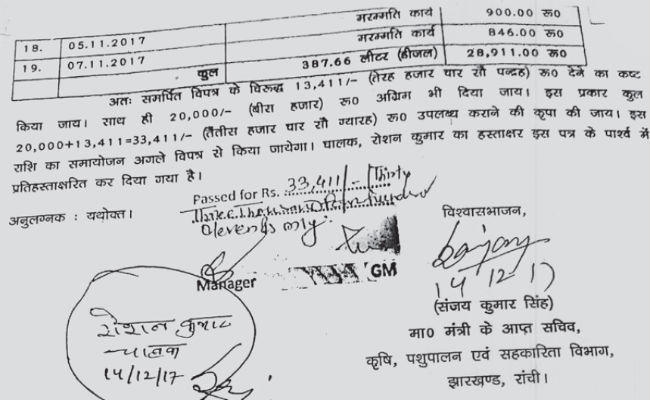 मरम्मति कार्य 900.00 रू0
18. 05.11.2017 मरम्मति कार्य 846.00 रू0
19. 07.11.2017 387.66 लीटर (डीजल) 28,911.00 रू0
कुल
अतः समर्पित विपत्र के विरूद्ध 13,411/- (तेरह हजार चार सौ पन्द्रह) रू0 देने का कष्ट
किया जाय। साथ ही 20,000/- (बीस हजार) रू0 अग्रिम भी दिया जाय। इस प्रकार कुल
20,000+13,411=33,411/- (तैंतीस हजार चार सौ ग्यारह) रू0 उपलब्ध कराने की कृपा की जाय। इस
राशि का समायोजन अगले विपत्र से किया जायेगा। चालक, रोशन कुमार का हस्ताक्षर इस पत्र के पार्श्व में
प्रतिहस्ताक्षरित कर दिया गया है।
अनुलग्नक : यथोक्त।
Passed for Rs. 33,411/- (Thirty
Three Thousand Four Hundred
Eleven) only.
Manager
GM
विश्वासभाजन,
14/12/17
(संजय कुमार सिंह)
मा0 मंत्री के आप्त सचिव,
कृषि, पशुपालन एवं सहकारिता विभाग,
झारखण्ड, रांची।
रोशन कुमार
चालक
14/12/17